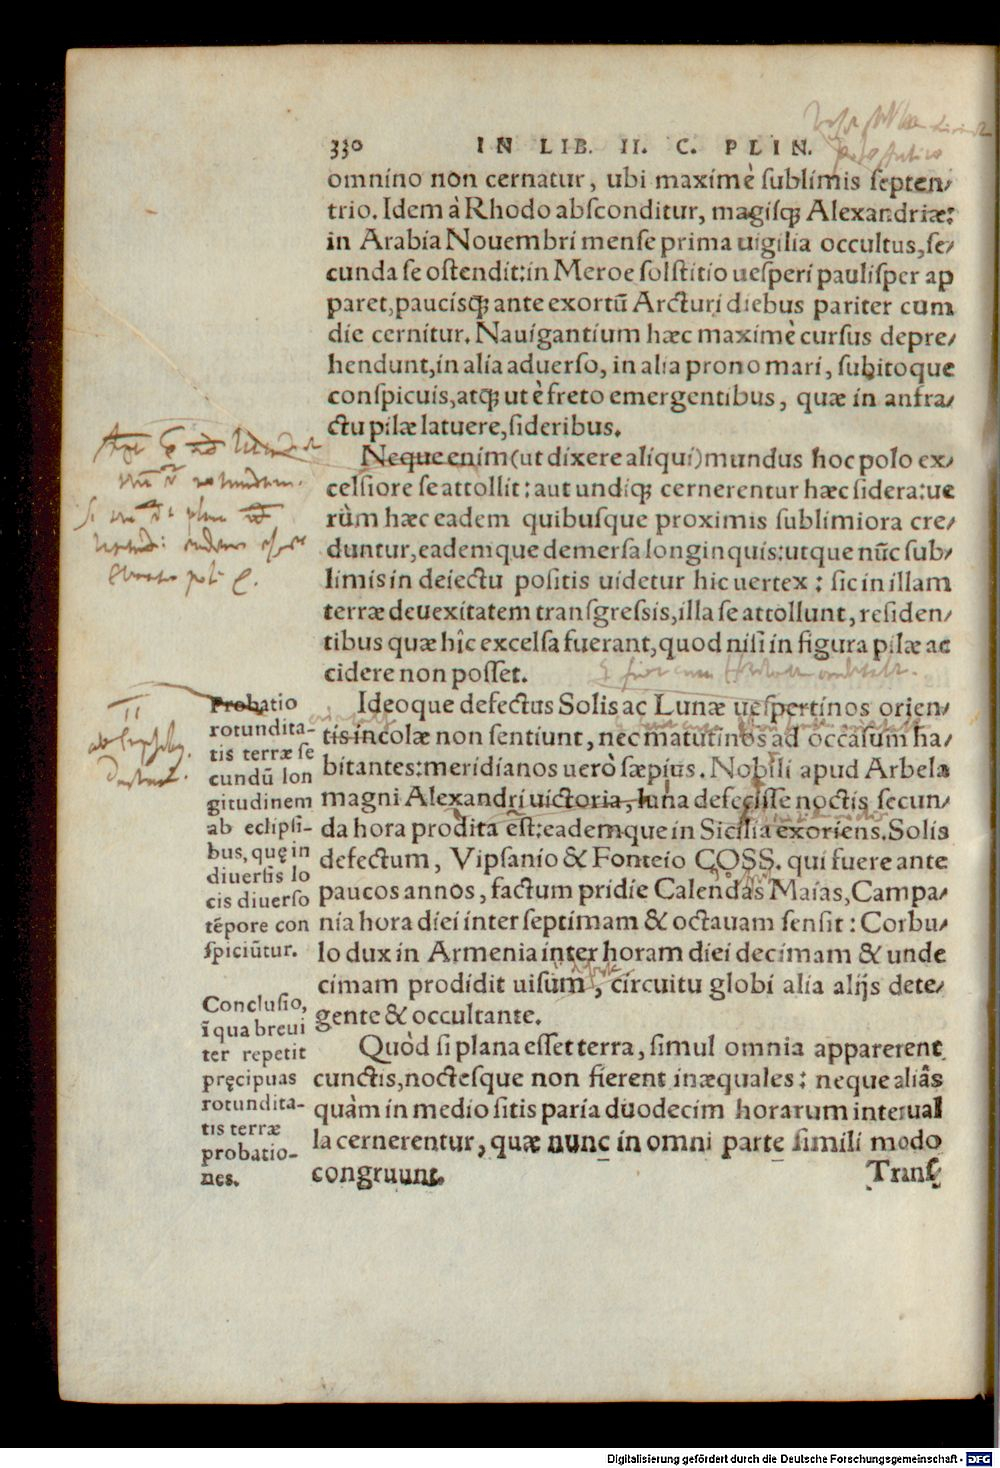 330 IN LIB. II. C. PLIN.
omnino non cernatur, ubi maximè ſublimis ſepten/
trio. Idem à Rhodo abſconditur, magiſq́ꝫ Alexandriæ:
in Arabia Nouembri menſe prima uigilia occultus, ſe/
cunda ſe oſtendit: in Meroe ſolſtitio ueſperi pauliſper ap
paret, pauciſq́ꝫ ante exortũ Arcturi diebus pariter cum
die cernitur. Nauigantium hæc maximè curſus depre/
hendunt, in alia aduerſo, in alia prono mari, ſubitoque
conſpicuis, atq́ꝫ ut è freto emergentibus, quæ in anfra/
ctu pilæ latuere, ſideribus.
Neque enim (ut dixere aliqui) mundus hoc polo ex/
celſiore ſe attollit: aut undiq́ꝫ cernerentur hæc ſidera: ue
rùm hæc eadem quibuſque proximis ſublimiora cre/
duntur, eademque demerſa longinquis: utque nũc ſub/
limis in deiectu poſitis uidetur hic uertex: ſic in illam
terræ deuexitatem tranſgreſsis, illa ſe attollunt, reſiden/
tibus quæ hîc excelſa fuerant, quod niſi in figura pilæ ac
cidere non poſſet.
Probatio
rotundita-
tis terræ ſe
cundũ lon
gitudinem
ab eclipſi-
bus, quę in
diuerſis lo
cis diuerſo
tẽpore con
ſpiciũtur.
Ideoque defectus Solis ac Lunæ ueſpertinos orien/
tis incolæ non ſentiunt, nec matutinos ad occaſum ha/
bitantes: meridianos uerò ſæpius. Nobili apud Arbela
magni Alexandri uictoria, luna defeciſſe noctis ſecun/
da hora prodita eſt: eademque in Sicilia exoriens. Solis
defectum, Vipſanio & Fonteio COSS. qui fuere ante
paucos annos, factum pridie Calendas Maias, Campa/
nia hora diei inter ſeptimam & octauam ſenſit: Corbu/
lo dux in Armenia inter horam diei decimam & unde
cimam prodidit uiſum, circuitu globi alia alijs dete/
gente & occultante.
Concluſio,
ĩ qua breui
ter repetit
pręcipuas
rotundita-
tis terræ
probatio-
nes.
Quòd ſi plana eſſet terra, ſimul omnia apparerent
cunctis, nocteſque non fierent inæquales: neque aliâs
quàm in medio ſitis paria duodecim horarum interual
la cernerentur, quæ nunc in omni parte ſimili modo
congruunt.
Tranſ
Digitalisierung gefördert durch die Deutsche Forschungsgemeinschaft - DFG